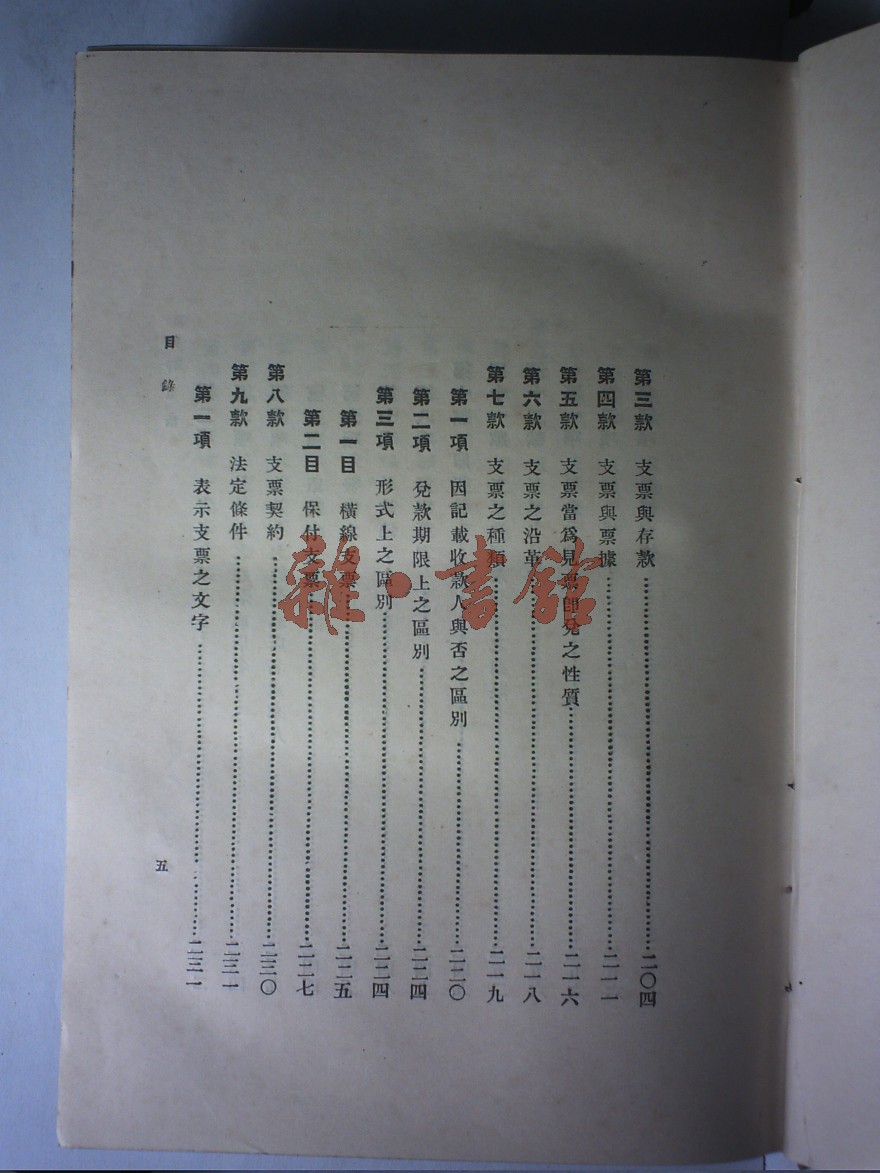 第三款 支票與存款…………二〇四
第四款 支票與票據…………二一一
第五款 支票當爲見票卽兌之性質…………二一六
第六款 支票之沿革…………二一八
第七款 支票之種類…………二一九
第一項 因記載收款人與否之區別…………二二〇
第二項 兌款期限上之區別…………二二四
第三項 形式上之區別…………二二四
第一目 橫線支票…………二二五
第二目 保付支票…………二二七
第八款 支票契約…………二三〇
第九款 法定條件…………二三一
第一項 表示支票之文字…………二三一
目錄
五
雜·書館